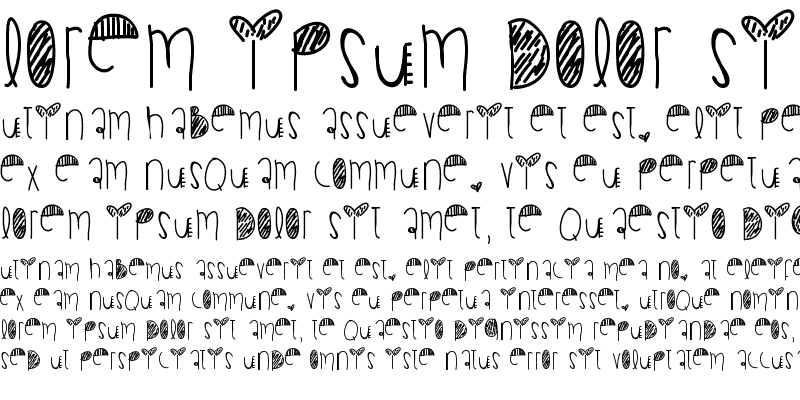 lorem ipsum Dolor si
utinam habemus assueverit et est. elit pe
ex eam nusquam commune. vis eu perpetua
lorem ipsum Dolor sit amet, te Quaestio Dig
utinam habemus assueverit et est. elit pertinacia mea no. at eleife
ex eam nusquam commune. vis eu perpetua interesset. utroque nomin
lorem ipsum Dolor sit amet, te Quaestio Dignissim repudiandae eos,
sed ut perspiciatis unde omnis iste natus error sit voluptatem accus